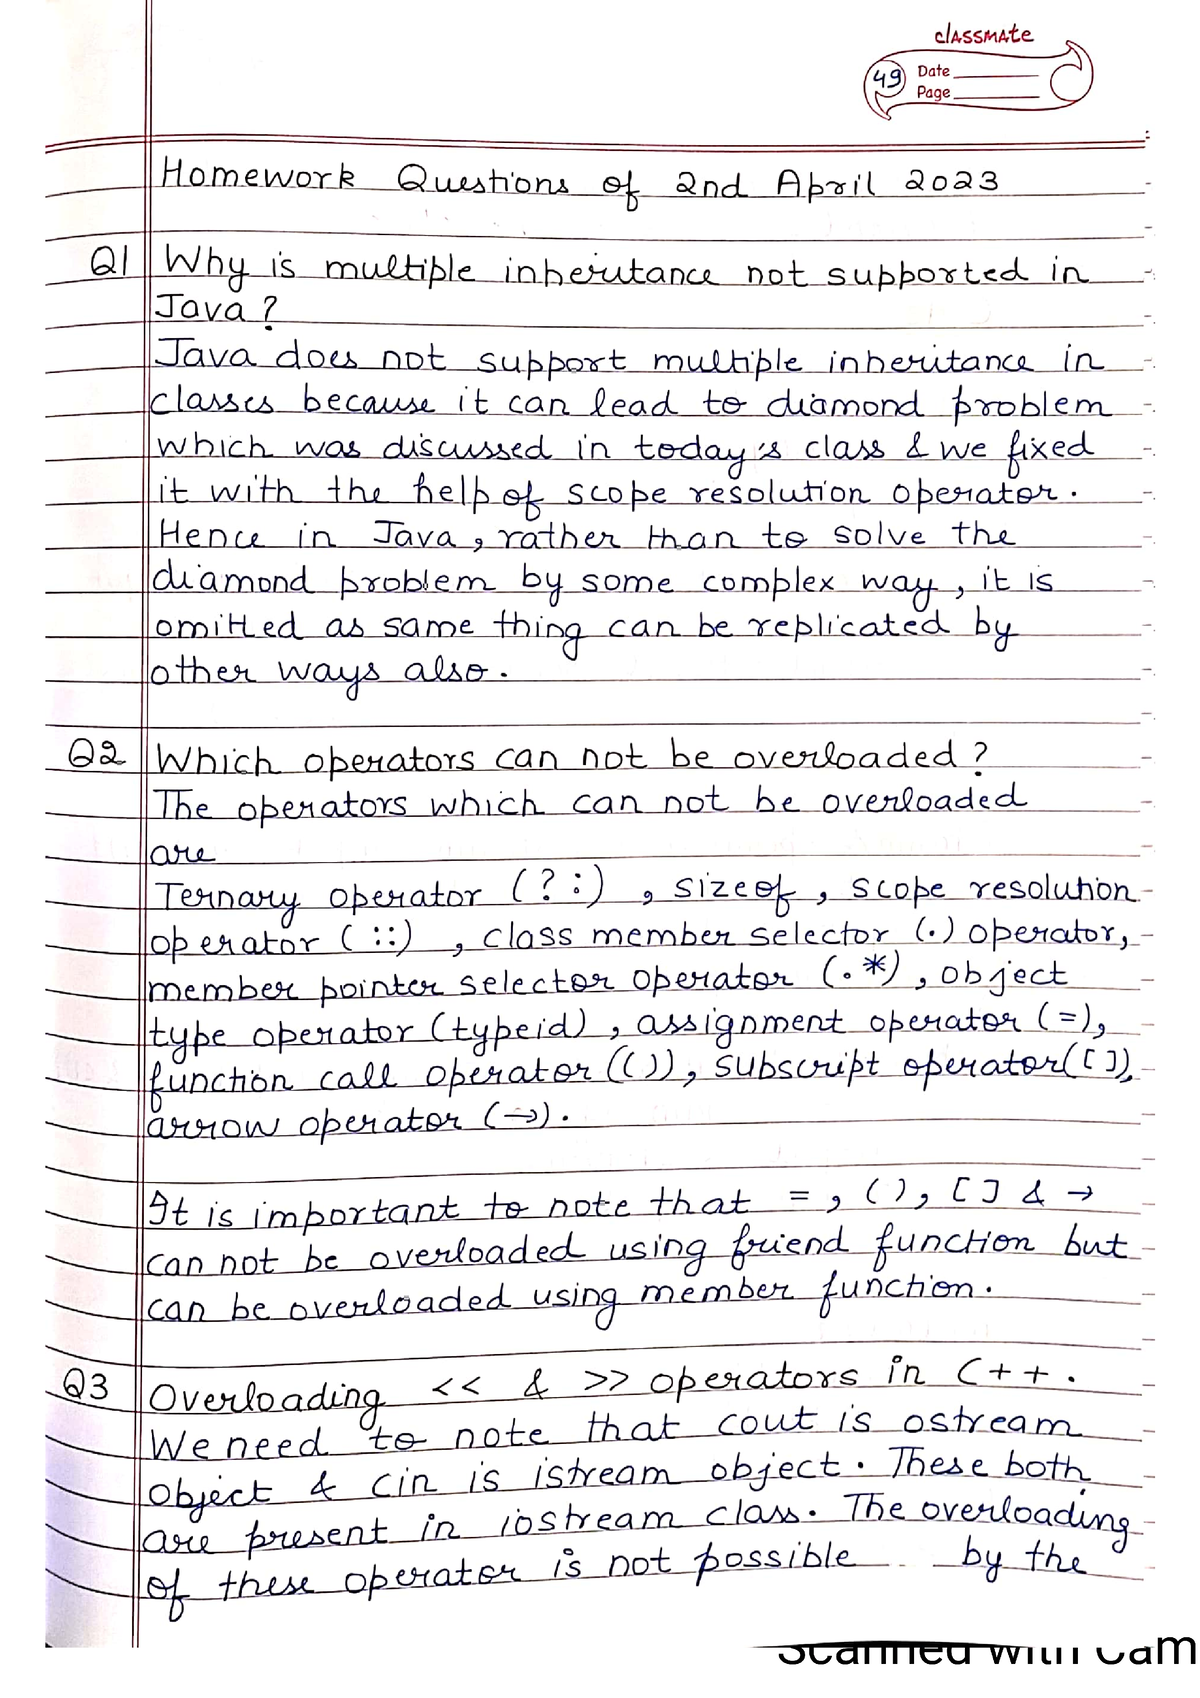 classmate
49 Date
Page
Homework Questions of 2nd April 2023
Q1 Why is multiple inheritance not supported in
Java?
Java does not support multiple inheritance in
classes because it can lead to diamond problem
which was discussed in today's class & we fixed
it with the help of scope resolution operator.
Hence in Java, rather than to solve the
diamond problem by some complex way, it is
omitted as same thing can be replicated by
other ways also.
Q2 Which operators can not be overloaded?
The operators which can not be overloaded
are
Ternary operator (?:), sizeof, scope resolution
operator (::), class member selector (.) operator,
member pointer selector operator (.*), object
type operator (typeid), assignment operator (=),
function call operator (()), subscript operator([]),
arrow operator (→).
It is important to note that =, (), [] & →
can not be overloaded using friend function but
can be overloaded using member function.
Q3 Overloading << & >> operators in C++.
We need to note that cout is ostream
object & cin is istream object. These both
are present in iostream class. The overloading
of these operator is not possible by the
Scanned with Cam